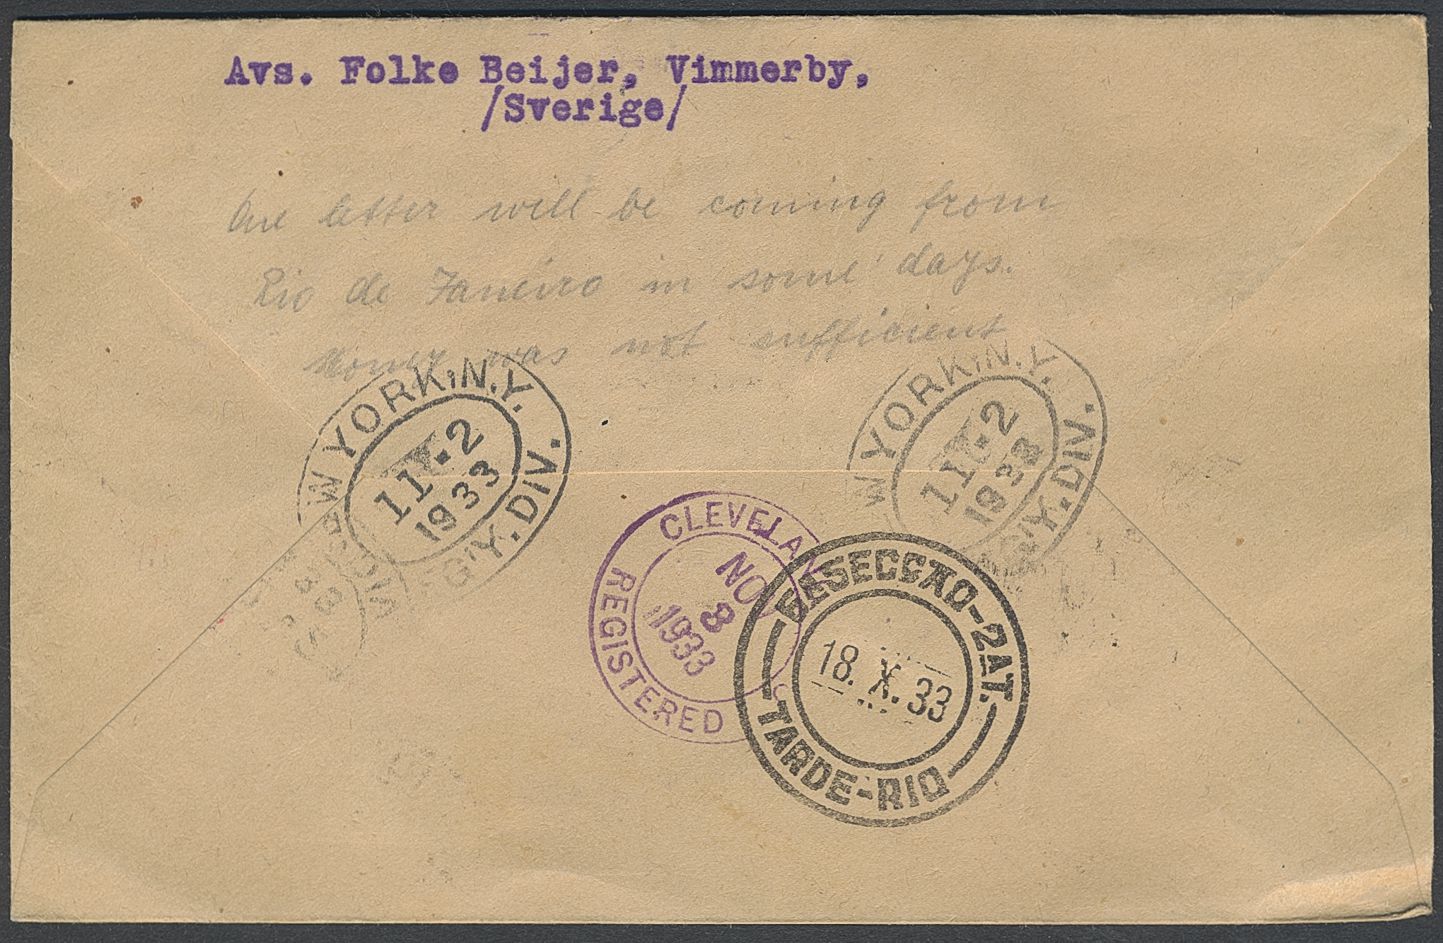 Avs. Folke Beijer, Vimmerby,
/Sverige/
One letter will be coming from
Rio de Janeiro in some days.
Money was not sufficient
W YORK, N.Y.
11-2
1933
G'Y. DIV.
W YORK, N.Y.
11-2
1933
G'Y. DIV.
CLEVELAN
NOV
8
1933
REGISTERED
SECÇAO-2AT.
18. X. 33
TARDE-RIO